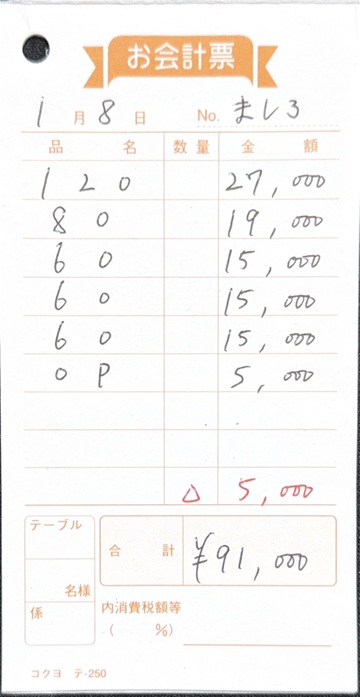 お会計票
1月8日 No. ましろ
品名 数量 金額
120 27,000
80 19,000
60 15,000
60 15,000
60 15,000
OP 5,000
△ 5,000
テーブル
合計 ¥91,000
名様
係 内消費税額等
( %)
コクヨ テ-250